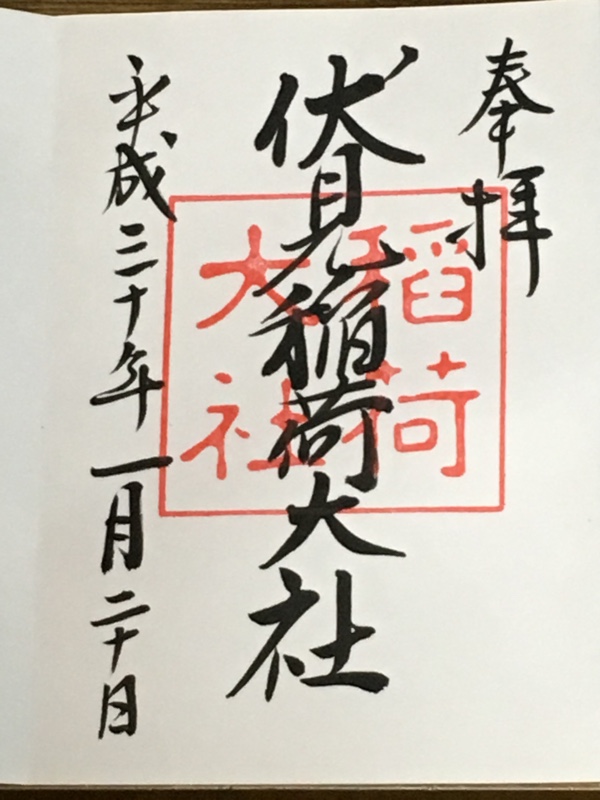 奉拝
伏見稲荷大社
平成三十年一月二十日
稲荷
大社